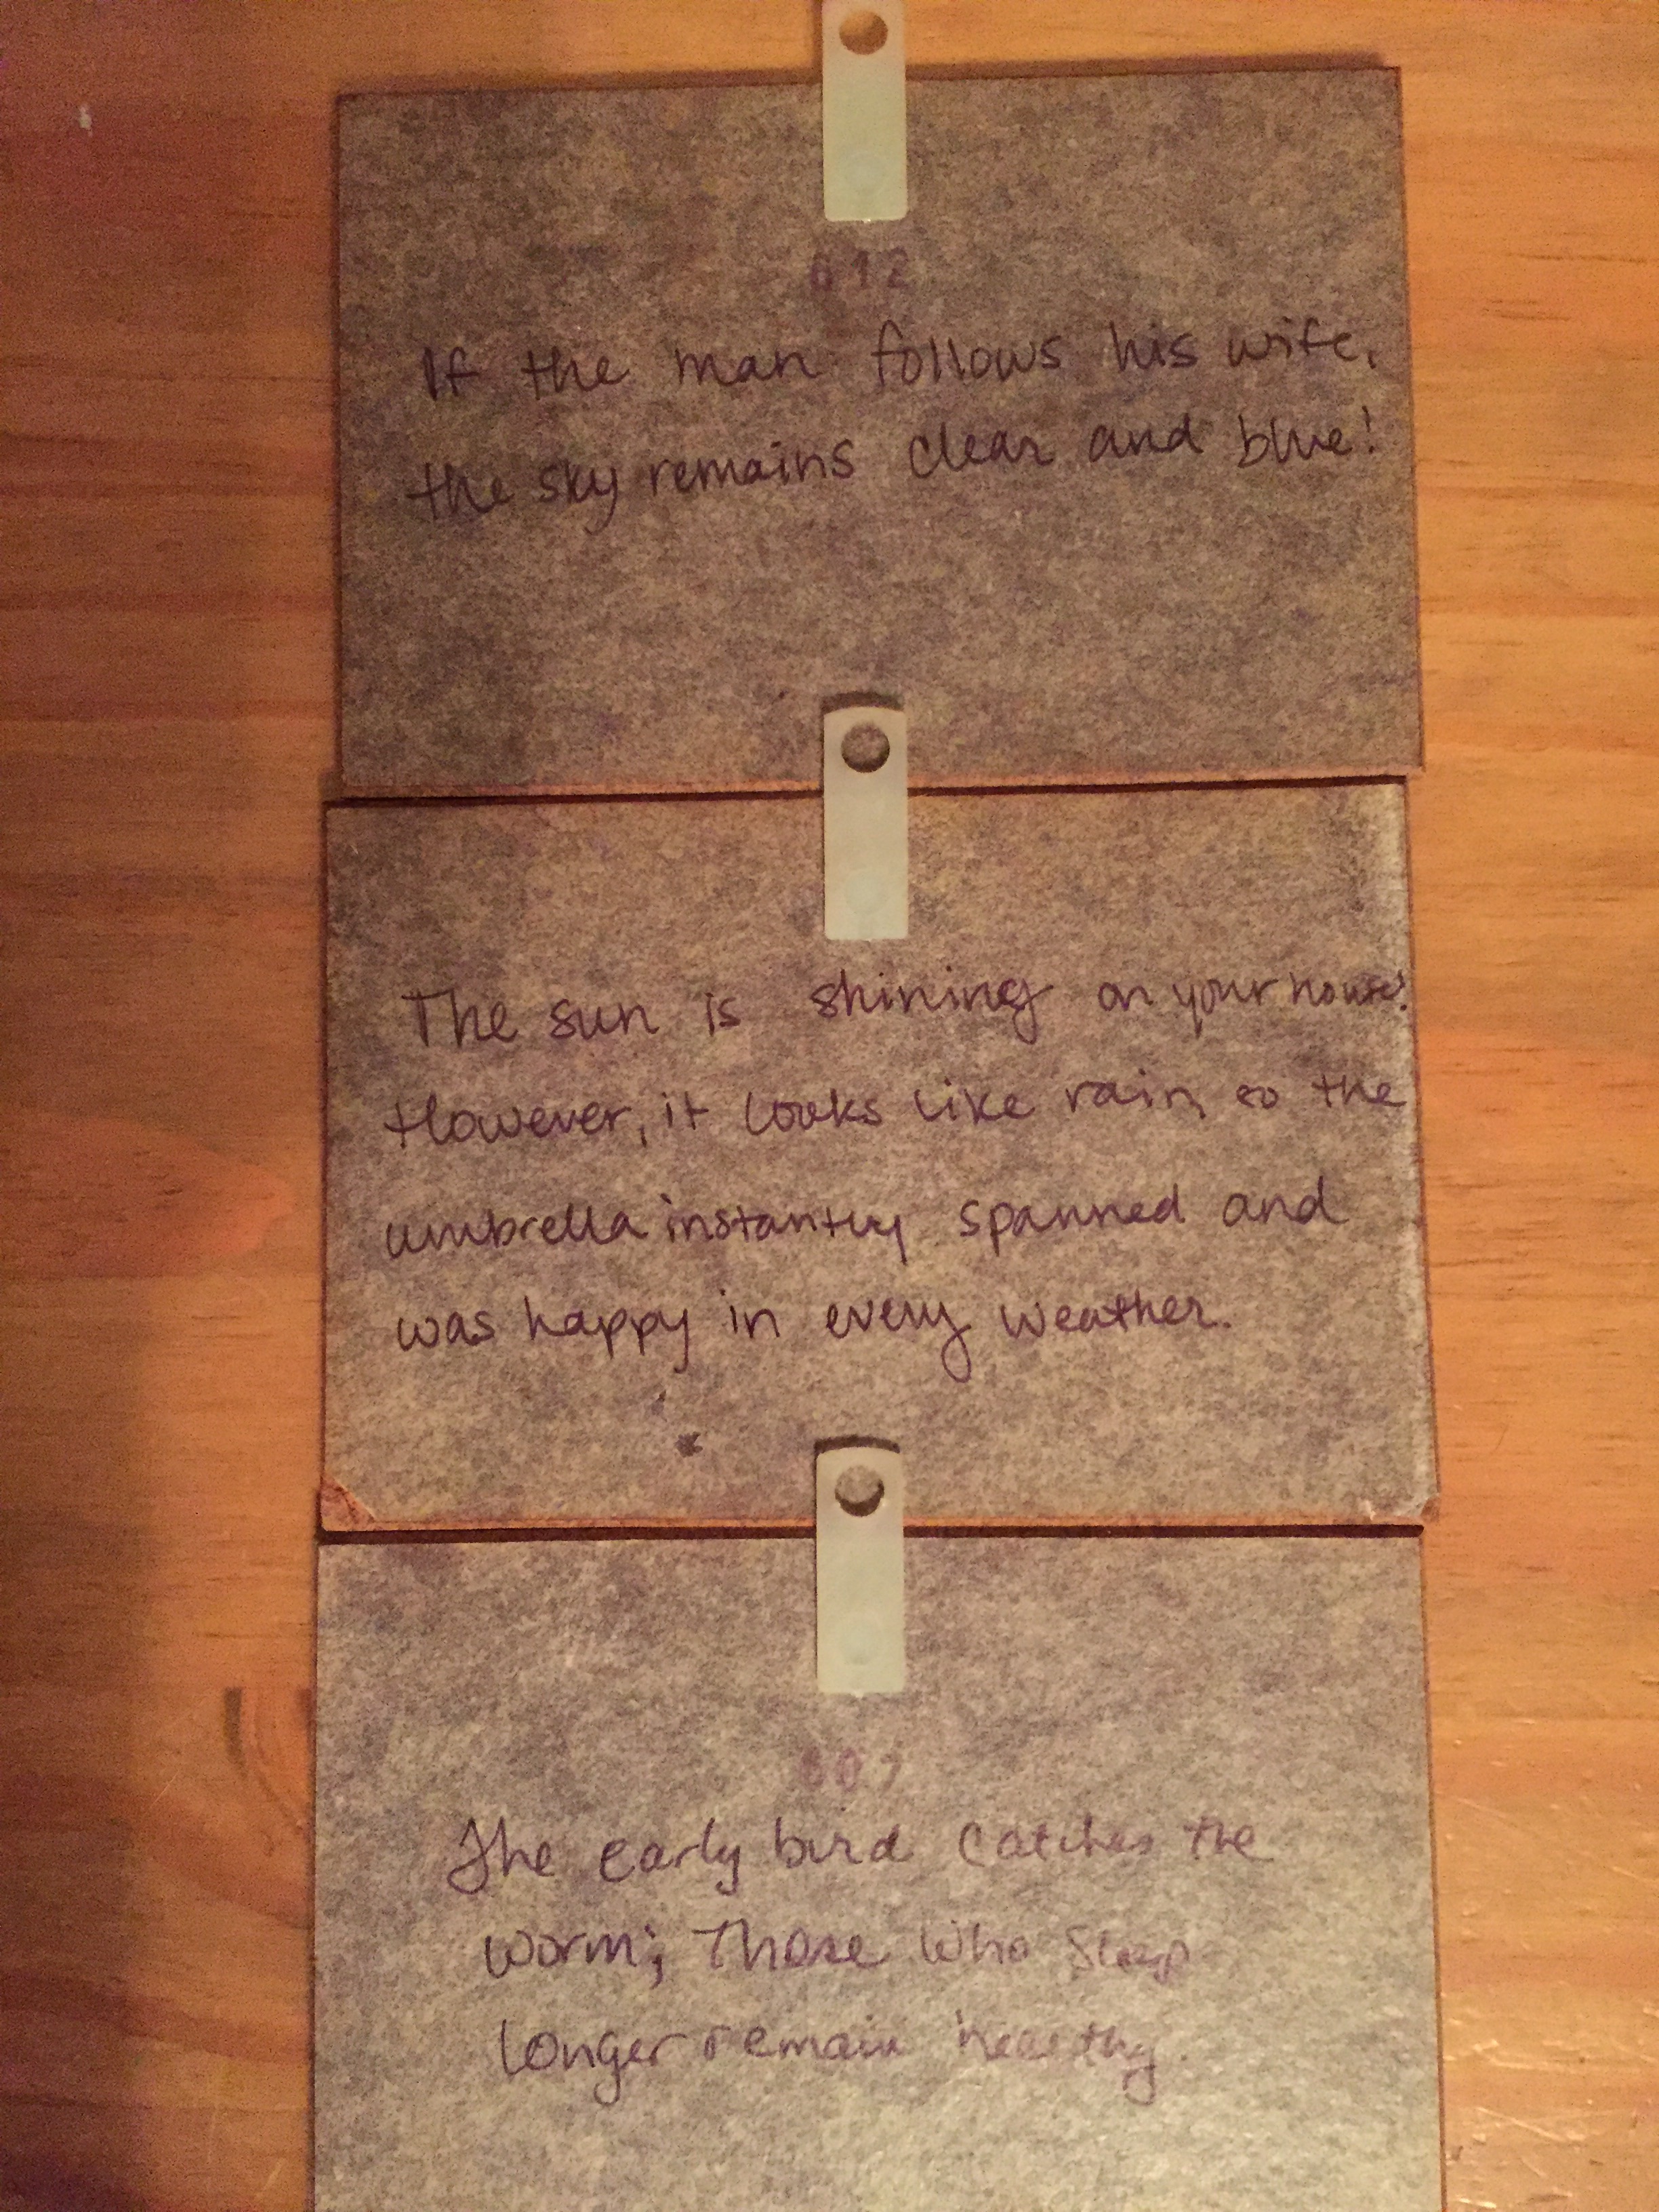 612
If the man follows his wife,
the sky remains clear and blue!
The sun is shining on your house!
However, it looks like rain, so the
umbrella instantly spanned and
was happy in every weather.
607
The early bird catches the
worm; Those who sleep
longer remain healthy.